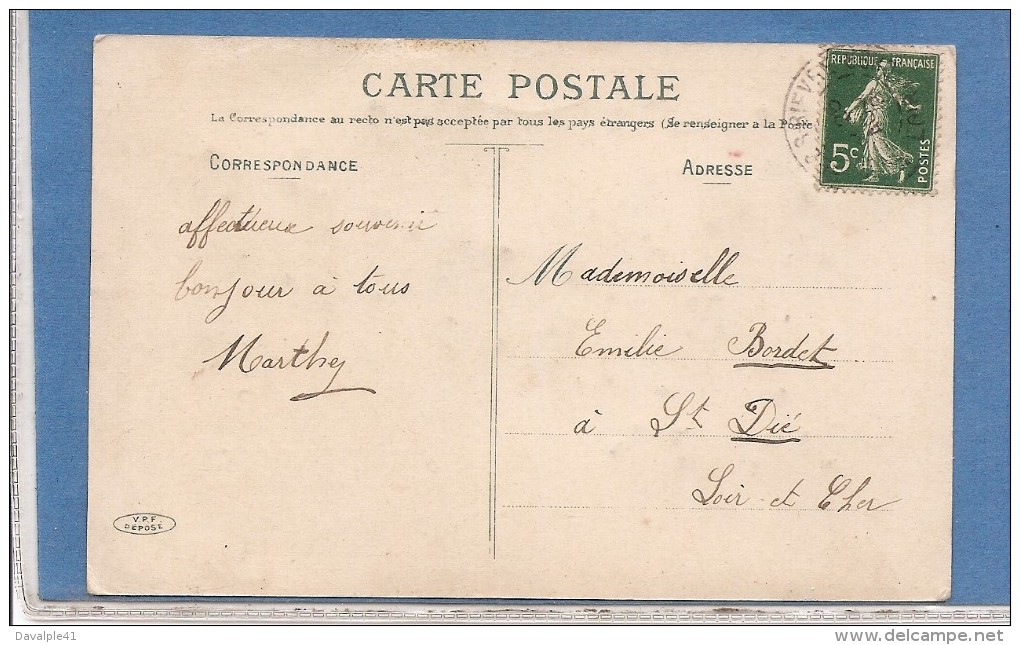 CARTE POSTALE
La Correspondance au recto n'est pas acceptée par tous les pays étrangers (Se renseigner a la Poste
CORRESPONDANCE
affectueux souvenir
bonjour à tous
Marthe
ADRESSE
Mademoiselle
Emilie Bordet
à St Dié
Loir et Cher
REPUBLIQUE FRANÇAISE
5c
POSTES
V.P.F.
DEPOSE
Davalple41
www.delcampe.net